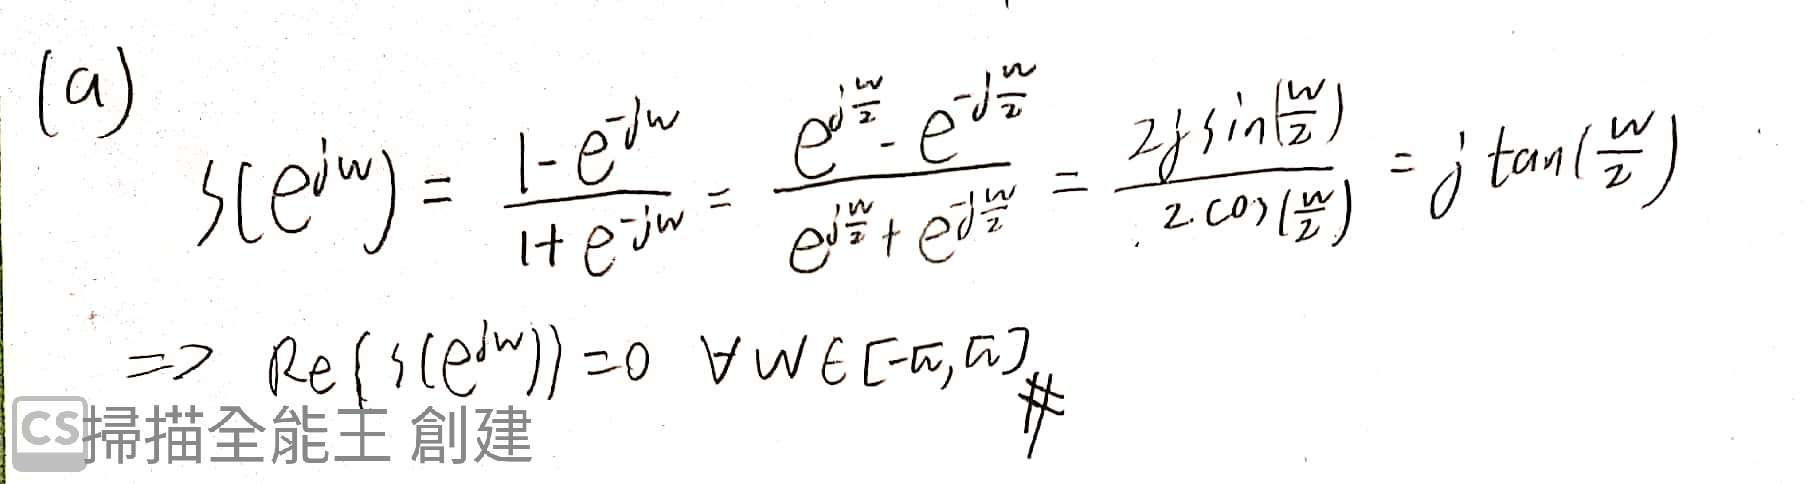 (a)
S(e^{jw}) = \frac{1-e^{-jw}}{1+e^{-jw}} = \frac{e^{j\frac{w}{2}} - e^{-j\frac{w}{2}}}{e^{j\frac{w}{2}} + e^{-j\frac{w}{2}}} = \frac{2j sin(\frac{w}{2})}{2 \cdot cos(\frac{w}{2})} = j tan(\frac{w}{2})
=> Re{S(e^{jw})} = 0 ∀ w ∈ [-π, π] #
CS 掃描全能王 創建